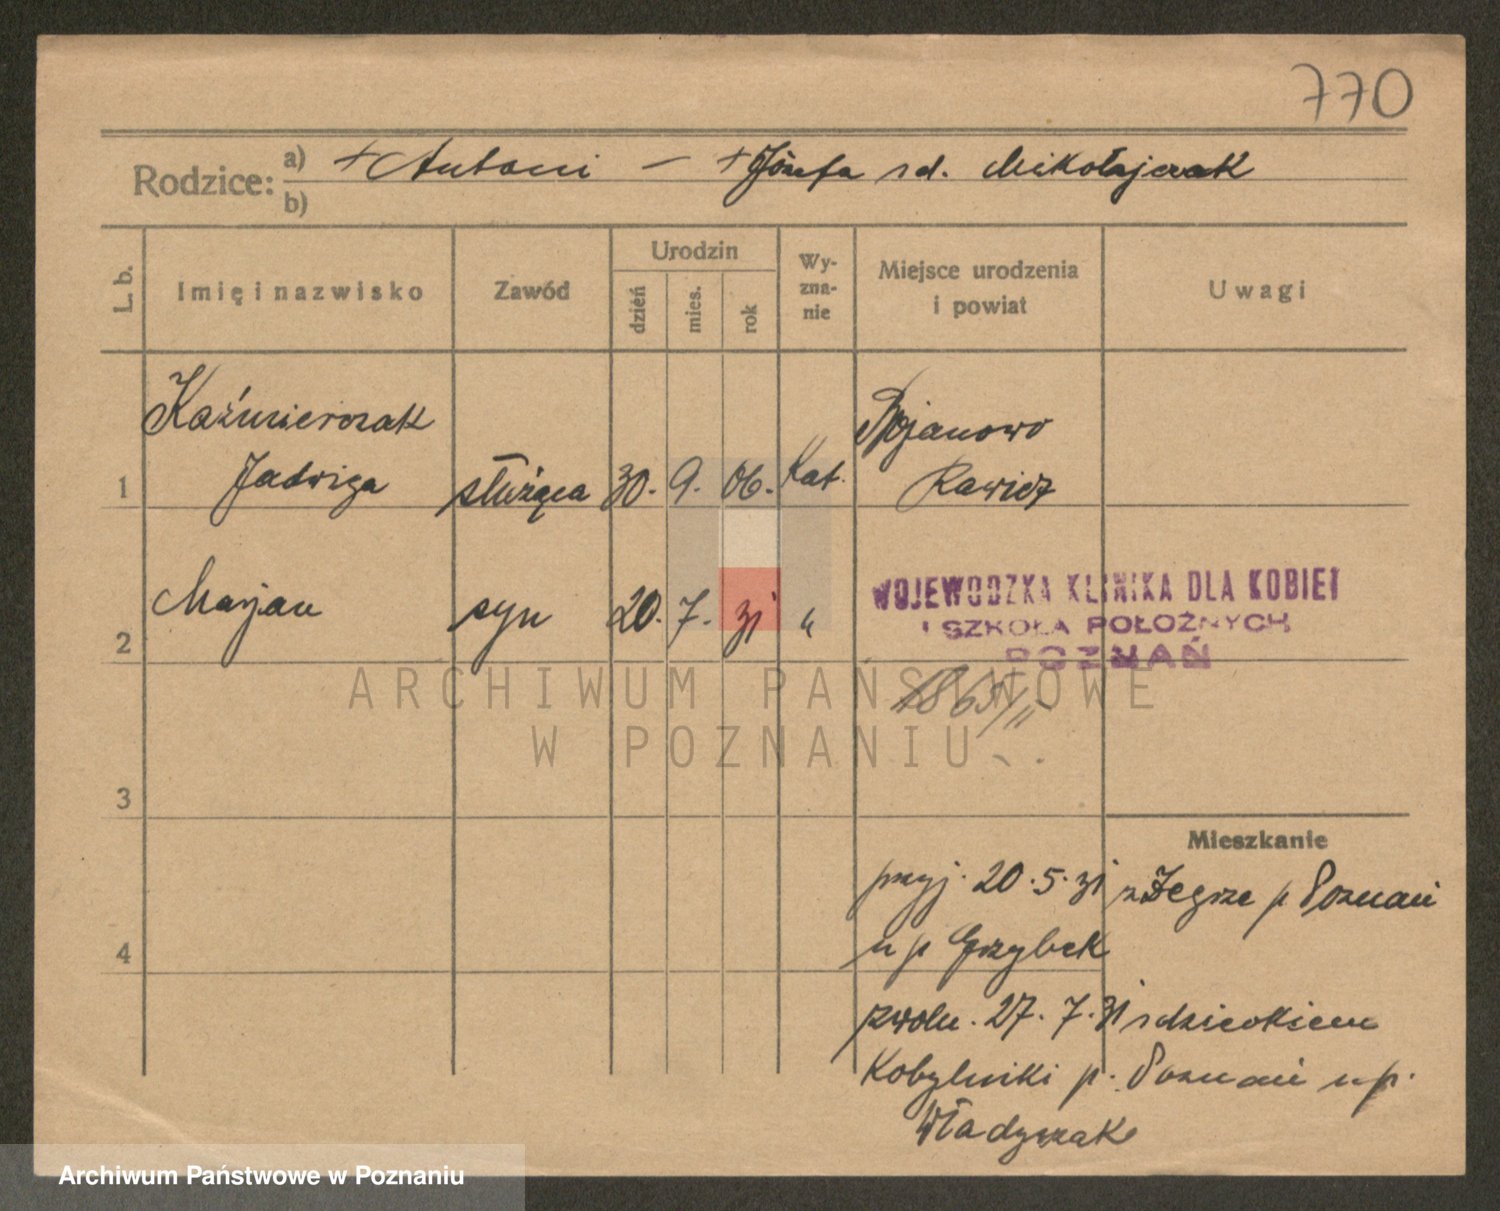 770
Rodzice: a) + Antoni — + Józefa zd. Mikołajczak
b)
L. b. Imię i nazwisko Zawód Urodzin dzień mies. rok Wy-zna-nie Miejsce urodzenia i powiat Uwagi
Kaźmierczak Bojanowo
1 Jadwiga służąca 30. 9. 06. Kat. Rawicz
2 Marjan syn 20. 7. 31 "
WOJEWODZKA KLINIKA DLA KOBIET
I SZKOŁA POŁOŻNYCH
POZNAŃ
ARCHIWUM PAŃSTWOWE
W POZNANIU
1865/II
3
Mieszkanie
przyj. 20. 5. 31 z Żegrze p Poznań
4 u p Grzybek
zwoln. 27. 7. 31 z dzieckiem
Kobylniki p. Poznań u p.
Władyszak
Archiwum Państwowe w Poznaniu